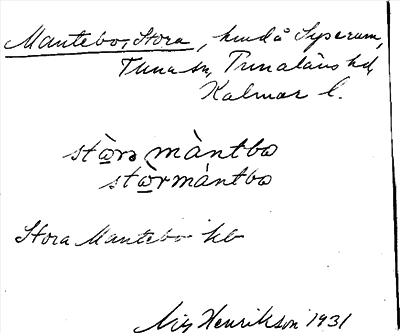 Mantebo, Stora, hmd å Syserum,
Tuna sn, Tunaläns hd,
Kalmar l.
stòrə màntbo
stòrmàntbo
Stora Mantebo kb
Nils Henrikson 1931